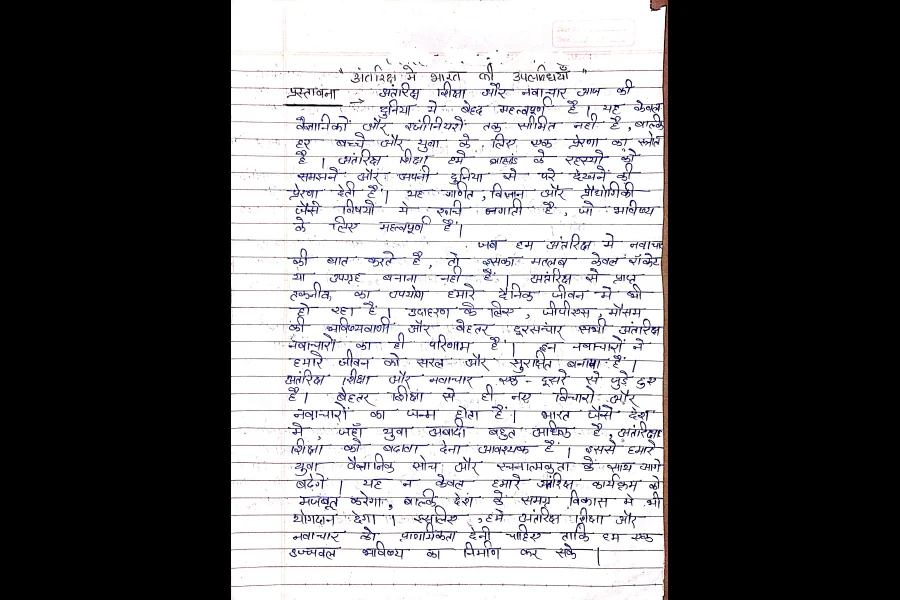 " अंतरिक्ष में भारत की उपलब्धियाँ "
प्रस्तावना → अंतरिक्ष शिक्षा और नवाचार आज की
दुनिया में बेहद महत्वपूर्ण है। यह केवल
वैज्ञानिकों और इंजीनियरों तक सीमित नहीं है, बल्कि
हर बच्चे और युवा के लिए एक प्रेरणा का स्त्रोत
है। अंतरिक्ष शिक्षा हमें ब्रह्मांड के रहस्यों को
समझने और अपनी दुनिया से परे देखने की
प्रेरणा देती है। यह गणित, विज्ञान और प्रौद्योगिकी
जैसे विषयों में रुचि जगाती है, जो भविष्य
के लिए महत्वपूर्ण है।
जब हम अंतरिक्ष में नवाचार
की बात करते है, तो इसका मतलब केवल रॉकेट
या उपग्रह बनाना नहीं है। अंतरिक्ष से प्राप्त
तकनीक का उपयोग हमारे दैनिक जीवन में भी
हो रहा है। उदाहरण के लिए, जीपीएस, मौसम
की भविष्यवाणी और बेहतर दूरसंचार सभी अंतरिक्ष
नवाचारों का ही परिणाम है। इन नवाचारों ने
हमारे जीवन को सरल और सुरक्षित बनाया है।
अंतरिक्ष शिक्षा और नवाचार एक - दूसरे से जुड़े हुए
है। बेहतर शिक्षा से ही नए विचारों और
नवाचारों का जन्म होता है। भारत जैसे देश
में, जहाँ युवा आबादी बहुत अधिक है, अंतरिक्ष
शिक्षा को बढ़ावा देना आवश्यक है। इससे हमारे
युवा वैज्ञानिक सोच और रचनात्मकता के साथ आगे
बढ़ेंगे। यह न केवल हमारे अंतरिक्ष कार्यक्रम को
मजबूत करेगा, बल्कि देश के समग्र विकास में भी
योगदान देगा। इसलिए, हमें अंतरिक्ष शिक्षा और
नवाचार को प्राथमिकता देनी चाहिए ताकि हम एक
उज्ज्वल भविष्य का निर्माण कर सकें।